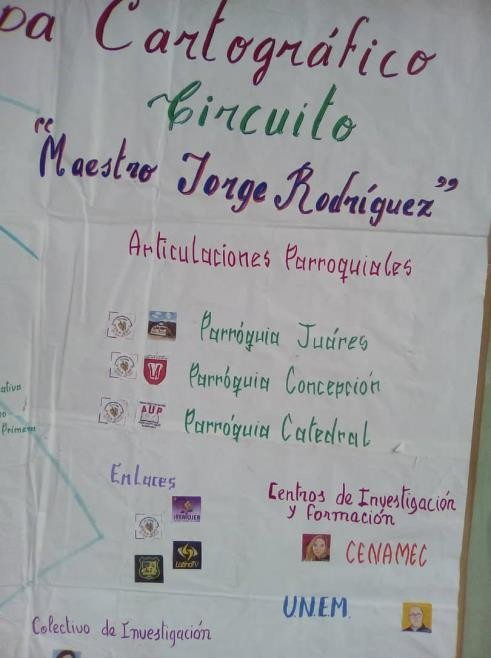 Cartográfico
Circuito
"Maestro Jorge Rodríguez"
Articulaciones Parroquiales
Parróquia Juáres
Parróquia Concepción
AUP
Parróquia Catedral
Enlaces
Centros de Investigación
y Formación
CENAMEC
U.N.E.M.
Colectivo de Investigación